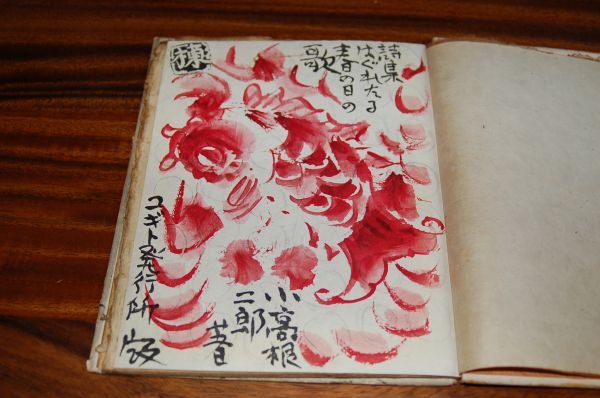 詩集
はぐれたる
春の日の
歌
小高根
二郎
著
コギト発行所
版